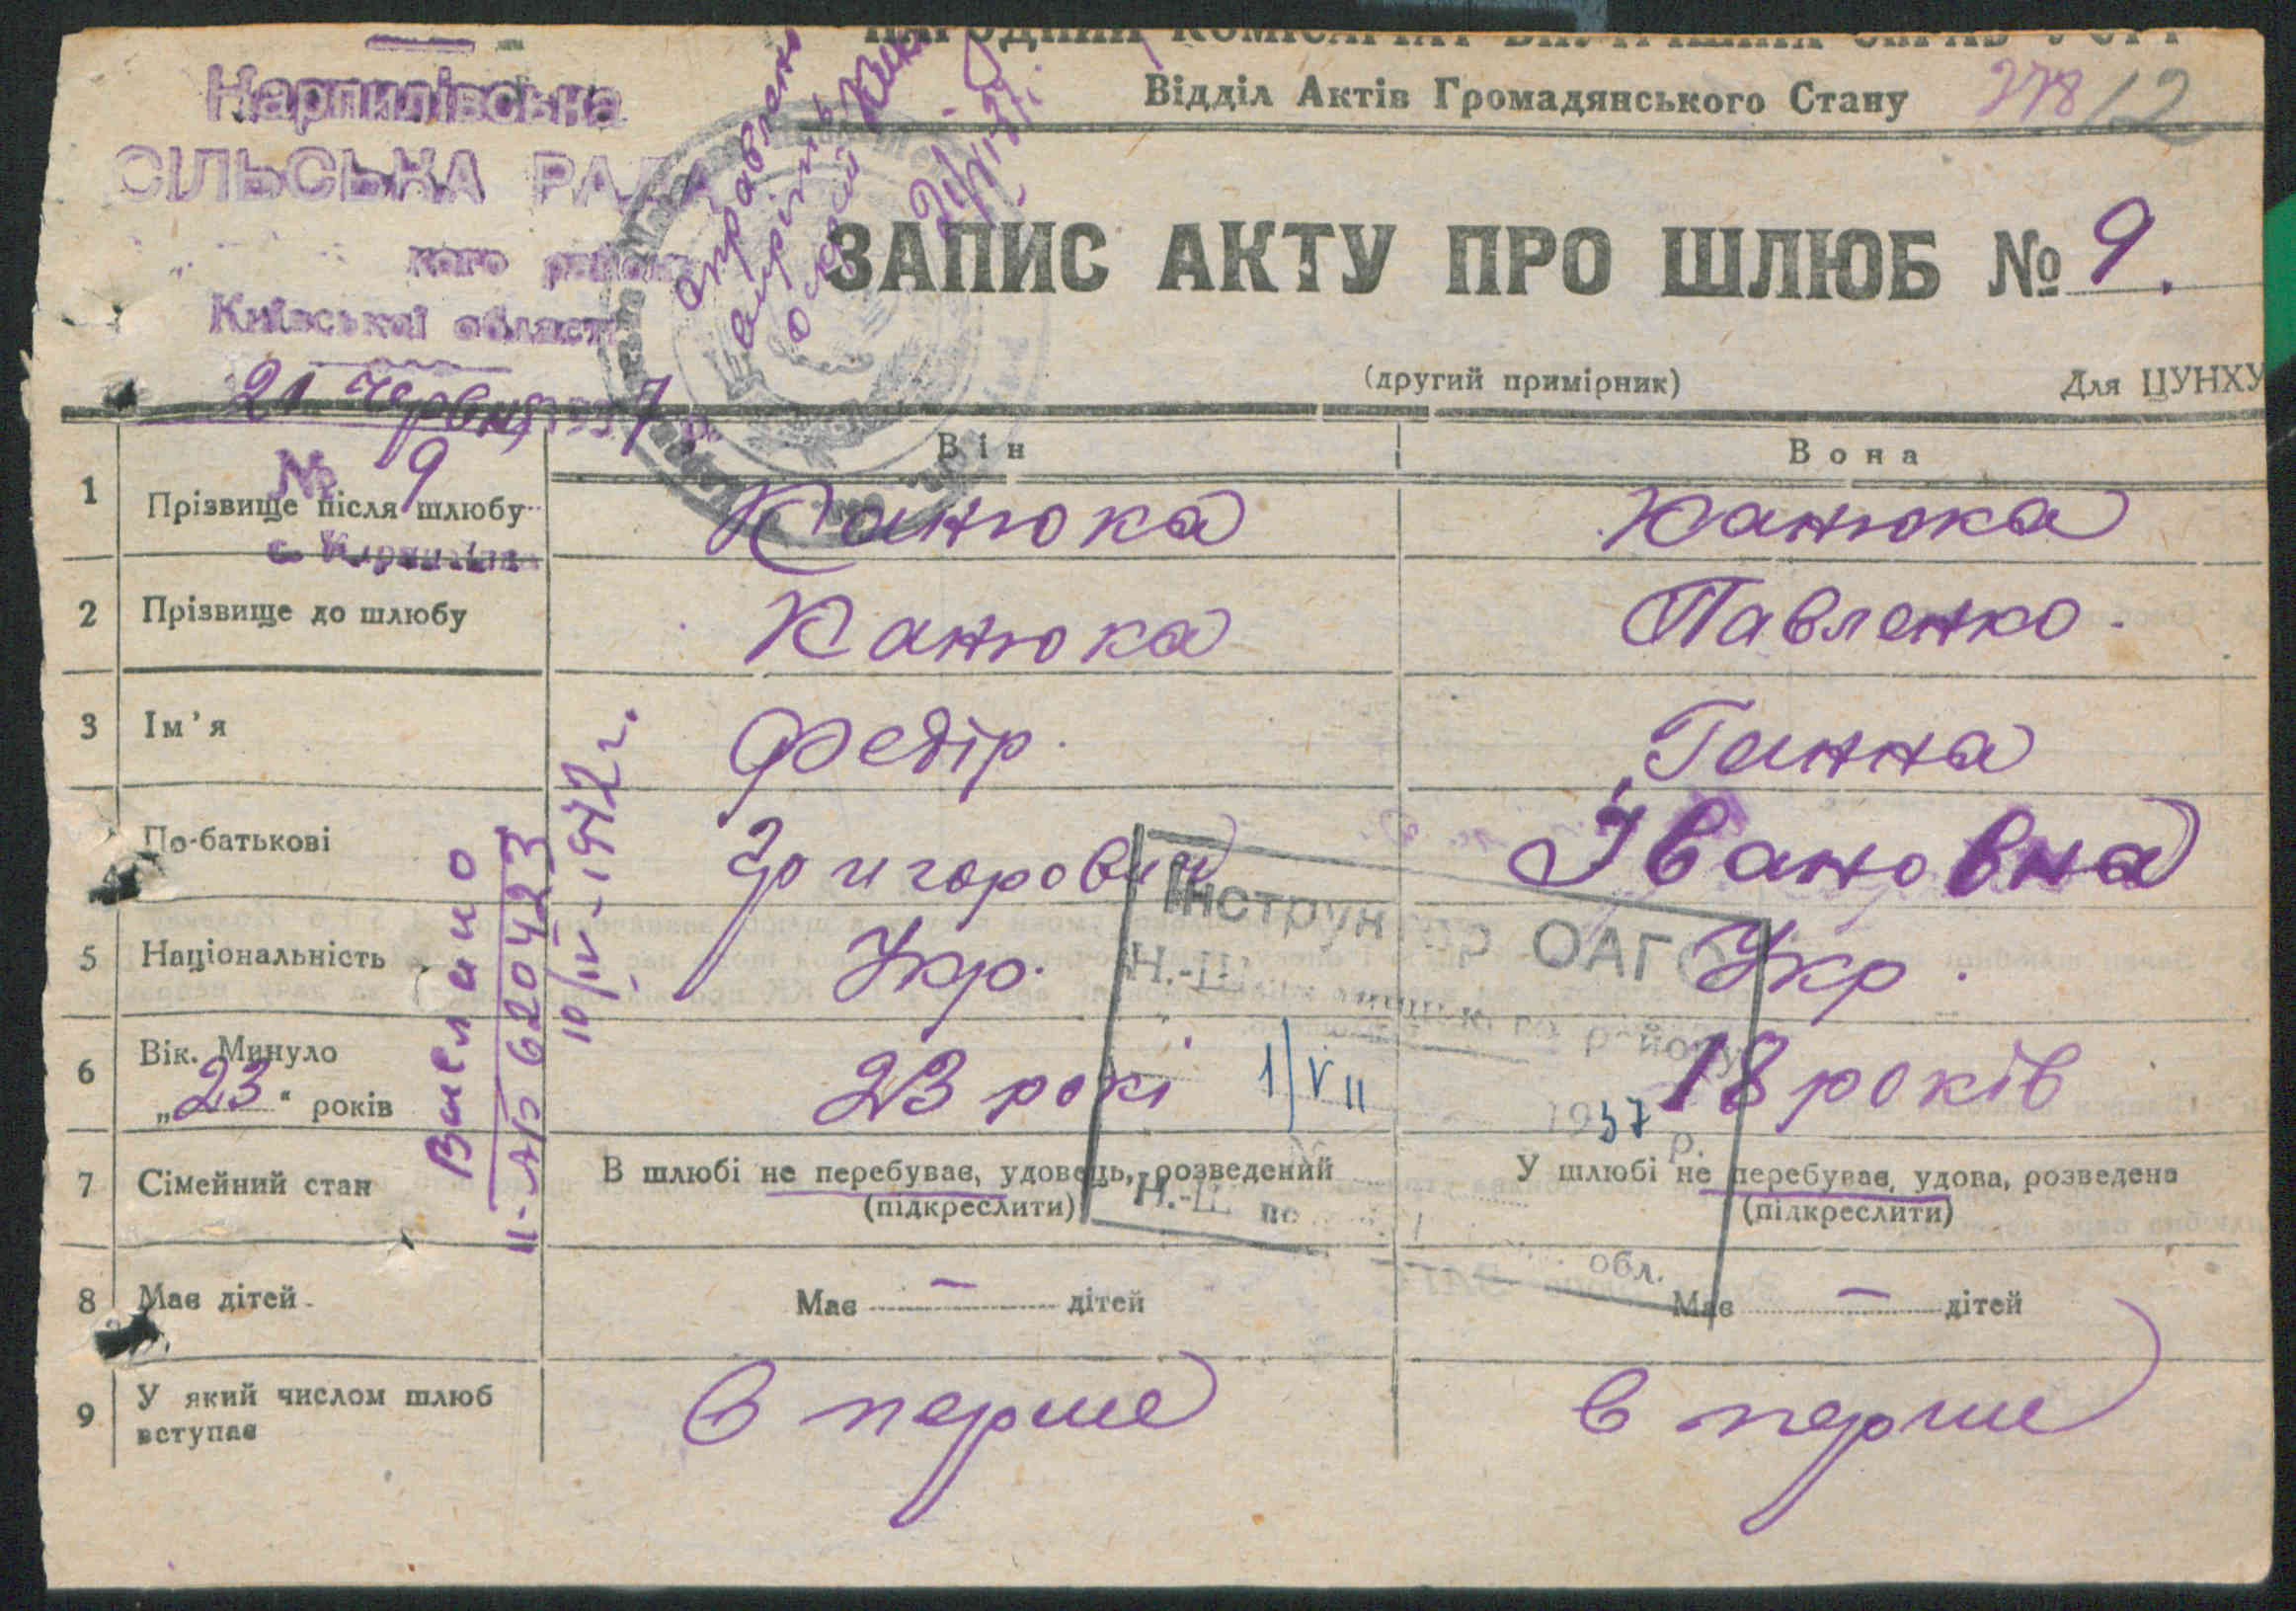 НАРОДНИЙ КОМІСАРІАТ ВНУТРІШНІХ СПРАВ УСРР
Відділ Актів Громадянського Стану
278/12
Карпилівська
СІЛЬСЬКА РАДА
кого району
Київської області
21 червня 1937 р.
№ 9
с. Карпилівка
ЗАПИС АКТУ ПРО ШЛЮБ № 9.
(другий примірник)
Для ЦУНХУ
Він
Вона
1 Прізвище після шлюбу Канюка Канюка
2 Прізвище до шлюбу Канюка Павленко
3 Ім'я Федір Ганна
По-батькові Григорович Івановна
5 Національність Укр. Укр.
6 Вік. Минуло „23" років 23 рокі 18 років
7 Сімейний стан
В шлюбі не перебуває, удовець, розведений (підкреслити)
У шлюбі не перебуває, удова, розведена (підкреслити)
8 Має дітей Має — дітей Має — дітей
9 У який числом шлюб вступає в перше в перше
Виелано
II-АБ 620423
10/IV-1972 г.
Інструктор ОАГС
Н.-Ш
району
1/VII 1937 р.
Н.-Ш
обл.